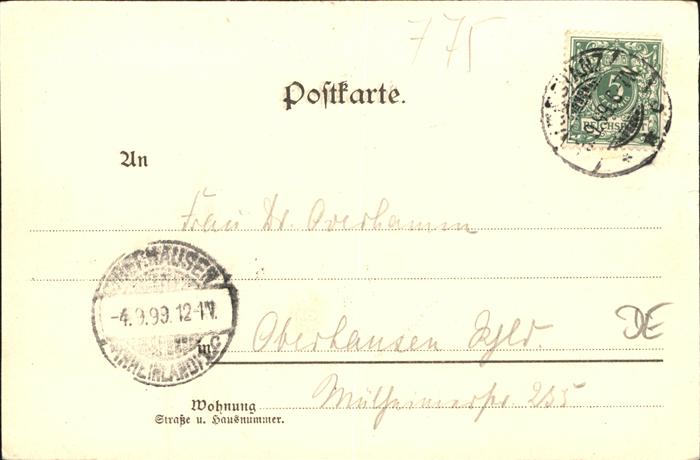 775
Postkarte.
5
REICHSPOST
An
Frau Dr. Overhamm
OBERHAUSEN
-4.9.99. 12-1N.
(RHEINLAND)
in Oberhausen Rhld.
DE
Mülheimerstr 255
Wohnung
Straße u. Hausnummer.